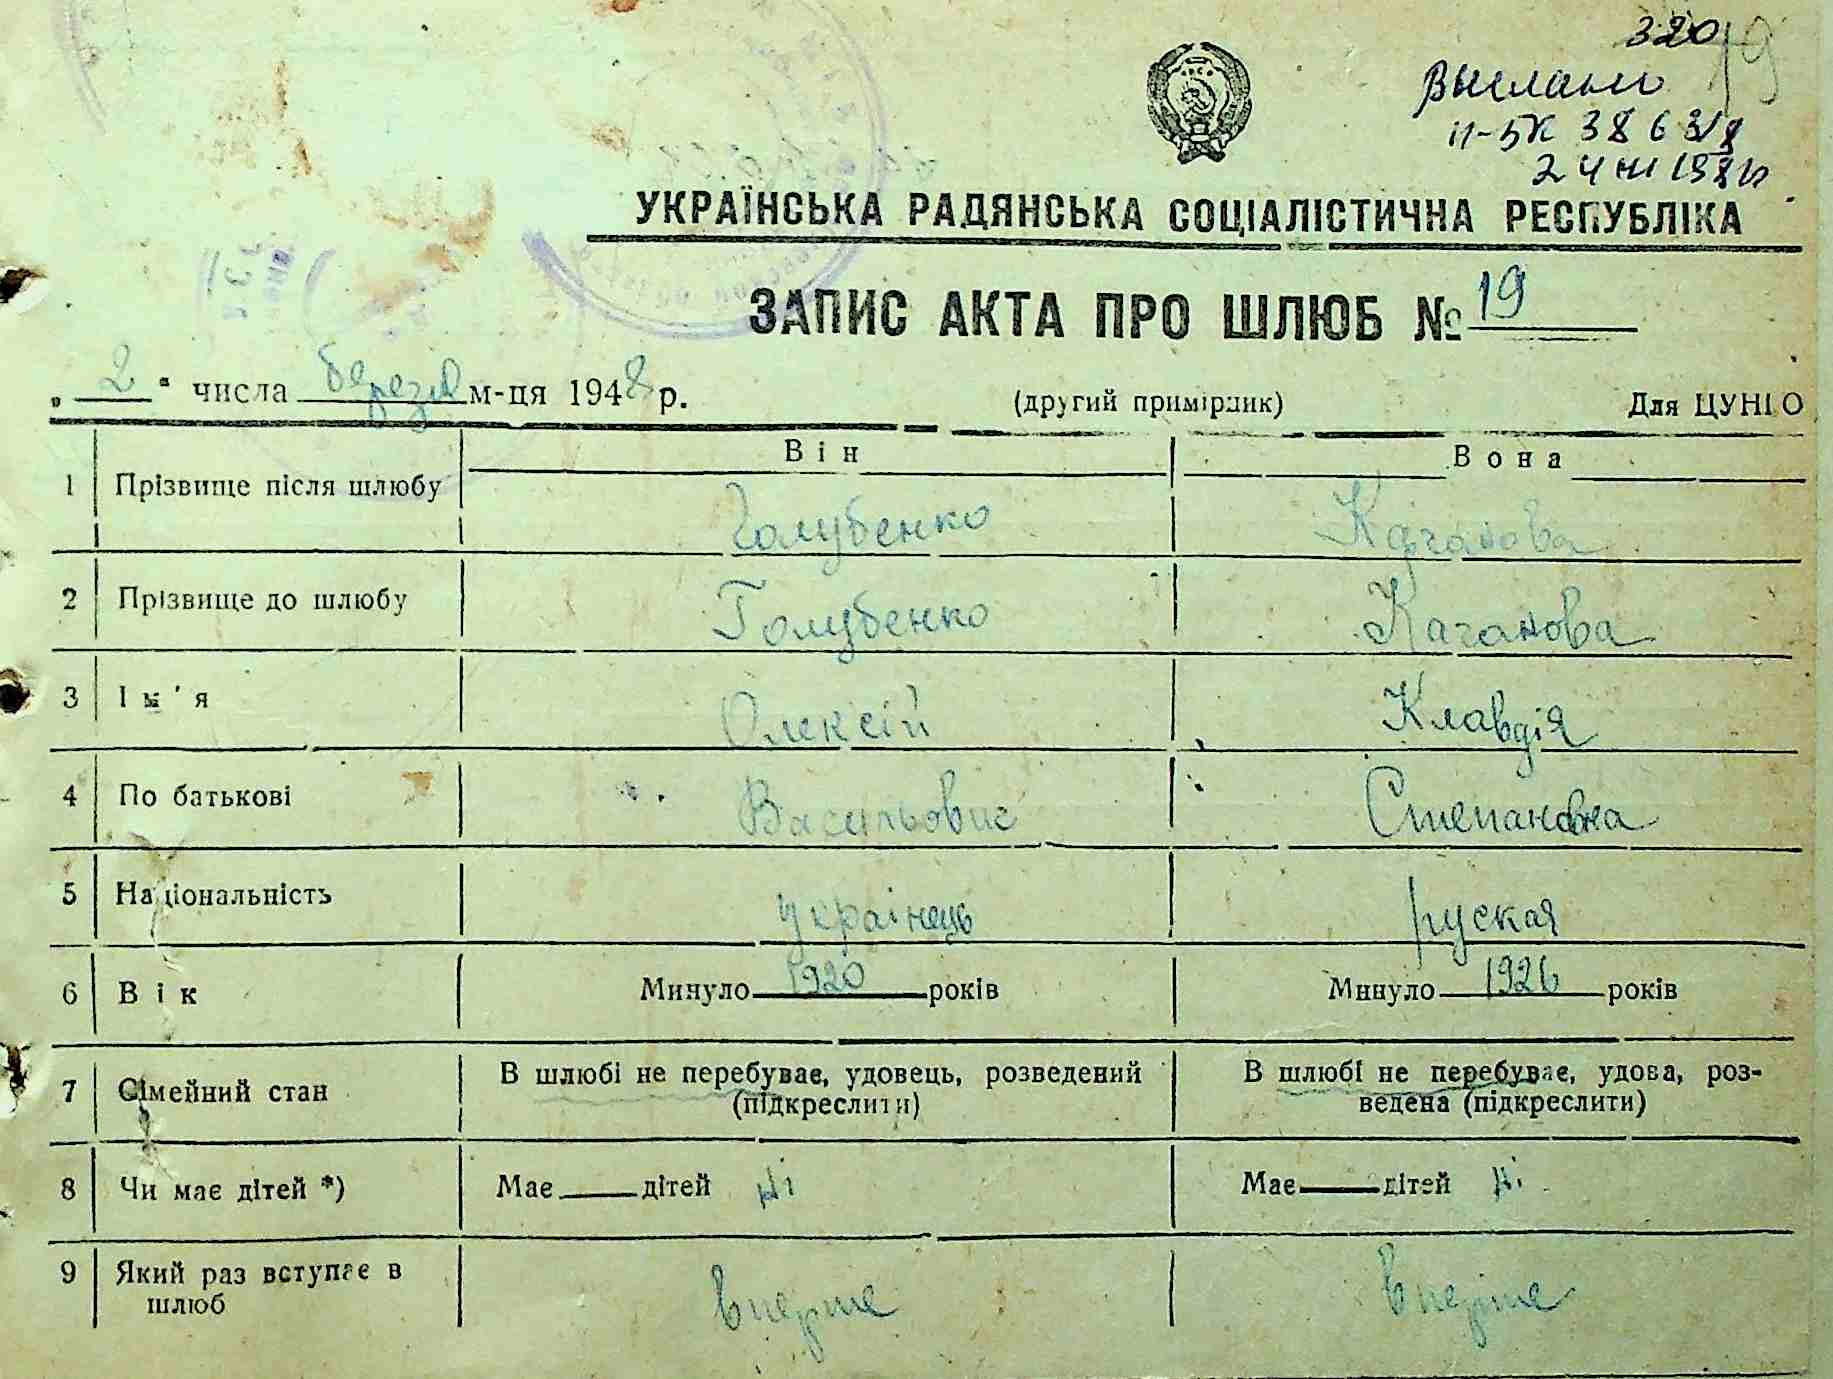 320
19
Выслан
УКРАЇНСЬКА РАДЯНСЬКА СОЦІАЛІСТИЧНА РЕСПУБЛІКА
ЗАПИС АКТА ПРО ШЛЮБ № 19
„ 2 “ числа березня м-ця 1948 р. (другий примірник) Для ЦУНГО
Він Вона
1 Прізвище після шлюбу Голубенко Каганова
2 Прізвище до шлюбу Голубенко Каганова
3 Ім'я Олексій Клавдія
4 По батькові Васильович Степановна
5 Національність українець руская
6 Вік Минуло 1920 років Минуло 1926 років
7 Сімейний стан В шлюбі не перебуває, удовець, розведений (підкреслити) В шлюбі не перебуває, удова, роз-
ведена (підкреслити)
8 Чи має дітей *) Має дітей ні Має дітей ні
9 Який раз вступає в шлюб вперше вперше